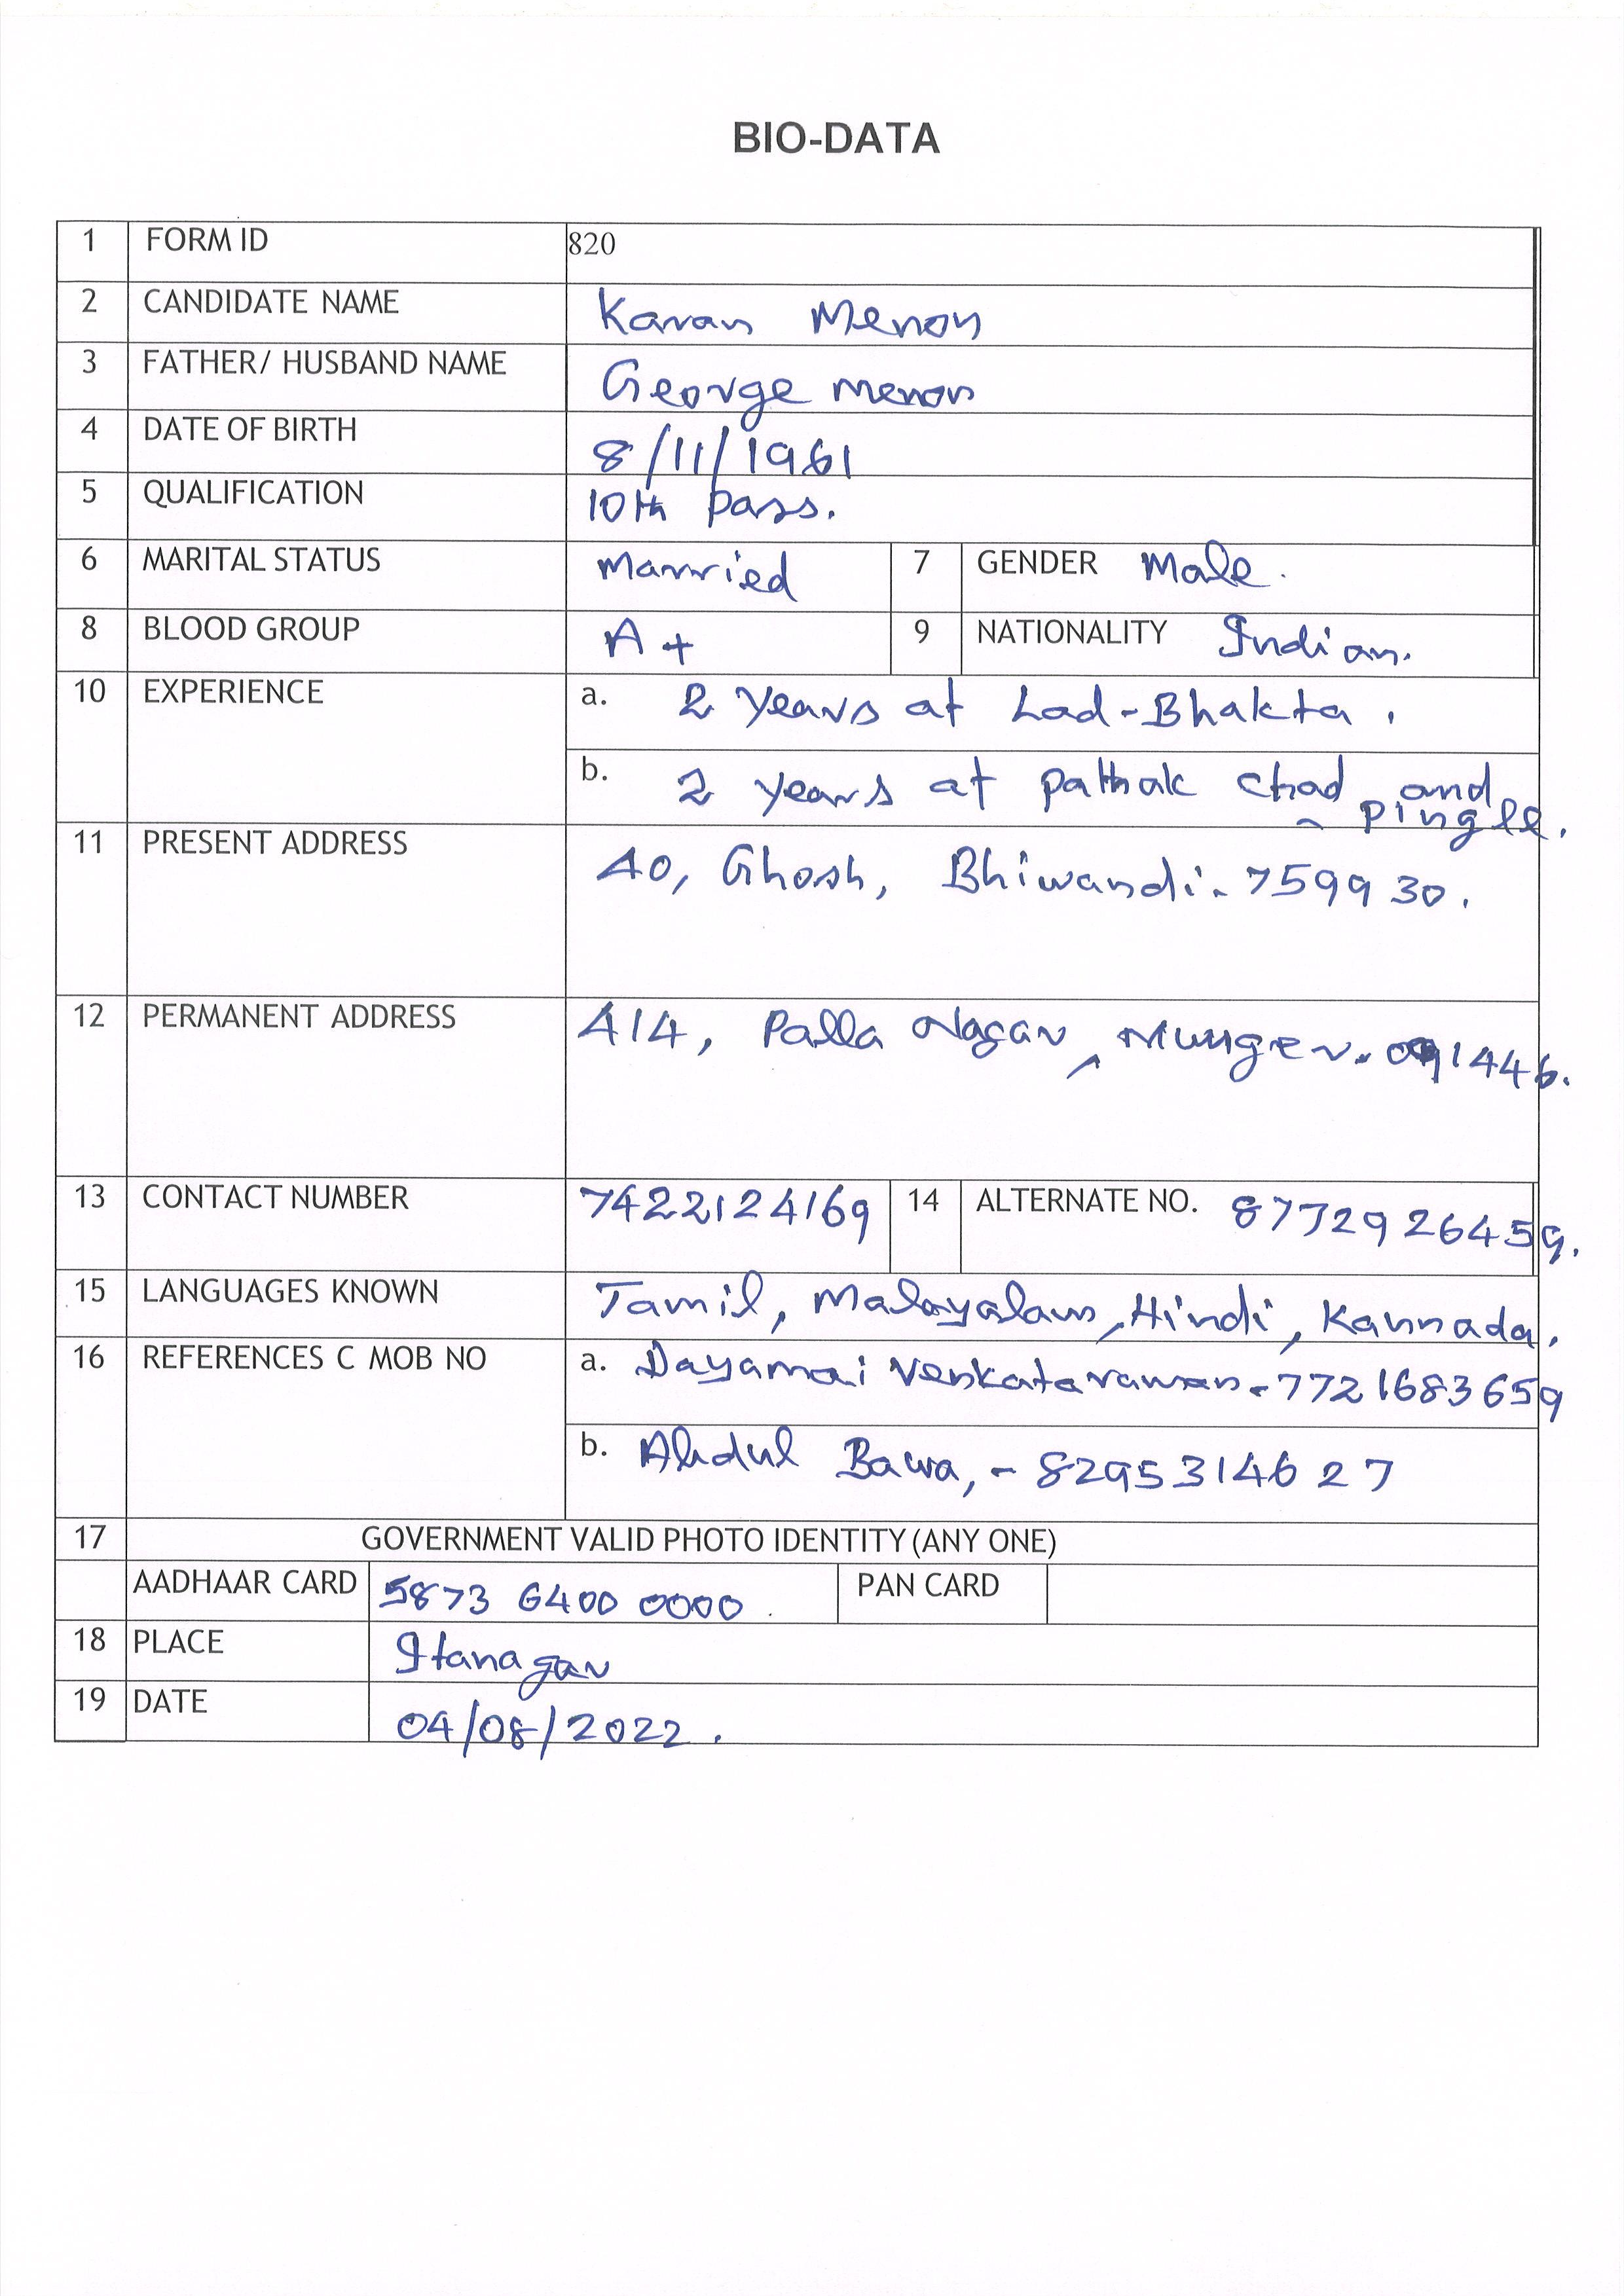 BIO-DATA
1 FORM ID 820
2 CANDIDATE NAME Karan Menon
3 FATHER/ HUSBAND NAME George Menon
4 DATE OF BIRTH 8/11/1961
5 QUALIFICATION 10th pass.
6 MARITAL STATUS Married 7 GENDER Male.
8 BLOOD GROUP A+ 9 NATIONALITY Indian.
10 EXPERIENCE a. 2 years at Lad-Bhakta.
b. 2 years at pathak Chad, and
pingle.
11 PRESENT ADDRESS 40, Ghosh, Bhiwandi-759930.
12 PERMANENT ADDRESS 414, Palla Nagar, Munger-091446.
13 CONTACT NUMBER 7422124169 14 ALTERNATE NO. 8772926459.
15 LANGUAGES KNOWN Tamil, Malayalam, Hindi, Kannada.
16 REFERENCES C MOB NO a. Dayamai Venkataraman-7721683659
b. Abdul Bawa,-8295314627
17 GOVERNMENT VALID PHOTO IDENTITY (ANY ONE)
AADHAAR CARD 5873 6400 0000. PAN CARD
18 PLACE Itanagar
19 DATE 04/08/2022.